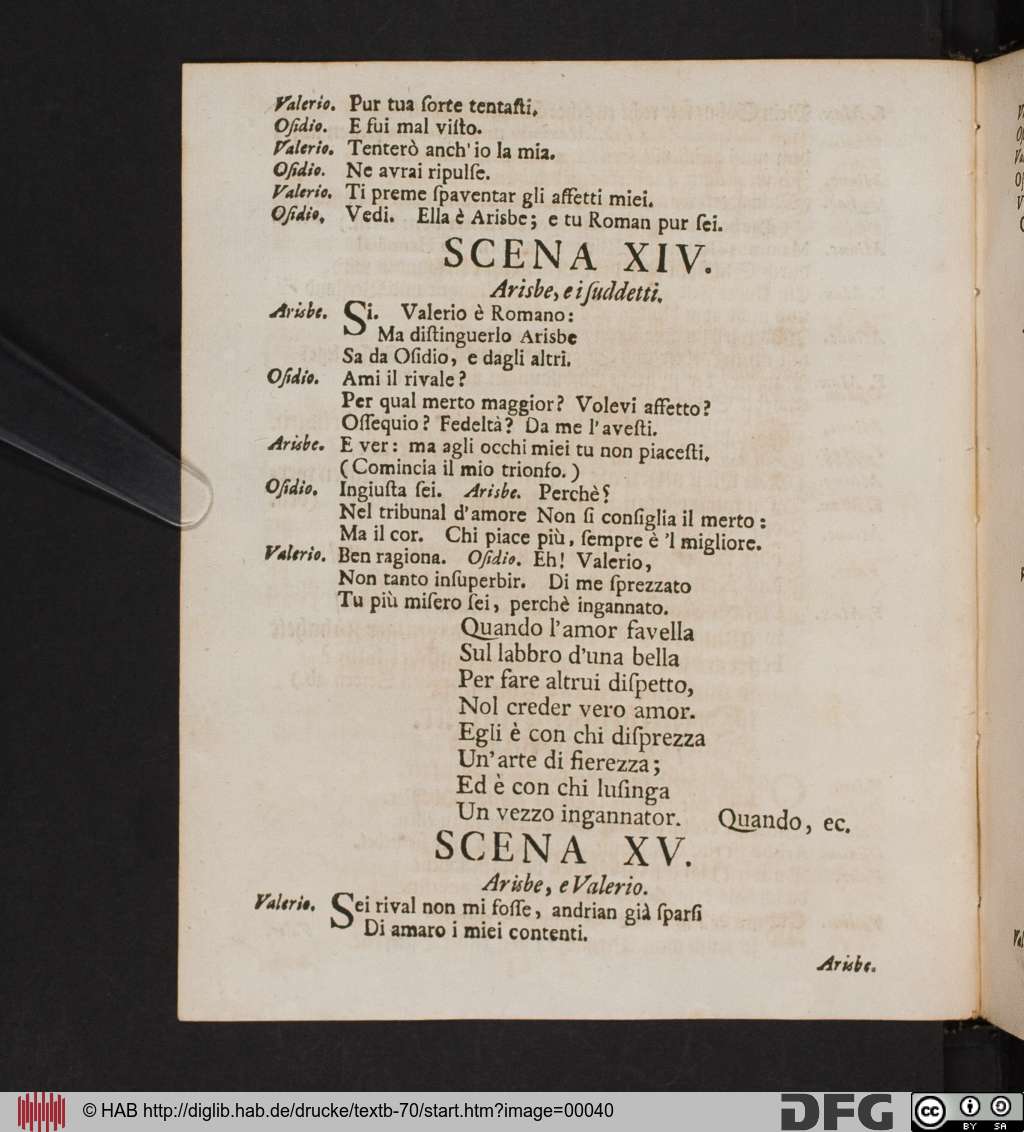 Valerio. Pur tua ſorte tentaſti.
Oſidio. E fui mal viſto.
Valerio. Tenterò anch' io la mia.
Oſidio. Ne avrai ripulſe.
Valerio. Ti preme ſpaventar gli affetti miei.
Oſidio. Vedi. Ella è Arisbe; e tu Roman pur ſei.
SCENA XIV.
Arisbe, e i ſuddetti.
Arisbe. Si. Valerio è Romano:
Ma diſtinguerlo Arisbe
Sa da Oſidio, e dagli altri.
Oſidio. Ami il rivale?
Per qual merto maggior? Volevi affetto?
Oſſequio? Fedeltà? Da me l'aveſti.
Arisbe. E ver: ma agli occhi miei tu non piaceſti.
(Comincia il mio trionfo.)
Oſidio. Ingiuſta ſei. Arisbe. Perchè?
Nel tribunal d'amore Non ſi conſiglia il merto:
Ma il cor. Chi piace più, ſempre è 'l migliore.
Valerio. Ben ragiona. Oſidio. Eh! Valerio,
Non tanto inſuperbir. Di me ſprezzato
Tu più miſero ſei, perchè ingannato.
Quando l'amor favella
Sul labbro d'una bella
Per fare altrui diſpetto,
Nol creder vero amor.
Egli è con chi diſprezza
Un'arte di fierezza;
Ed è con chi luſinga
Un vezzo ingannator. Quando, ec.
SCENA XV.
Arisbe, e Valerio.
Valerio. Sei rival non mi foſſe, andrian già ſparſi
Di amaro i miei contenti.
Arisbe.
© HAB http://diglib.hab.de/drucke/textb-70/start.htm?image=00040
DFG
cc BY SA